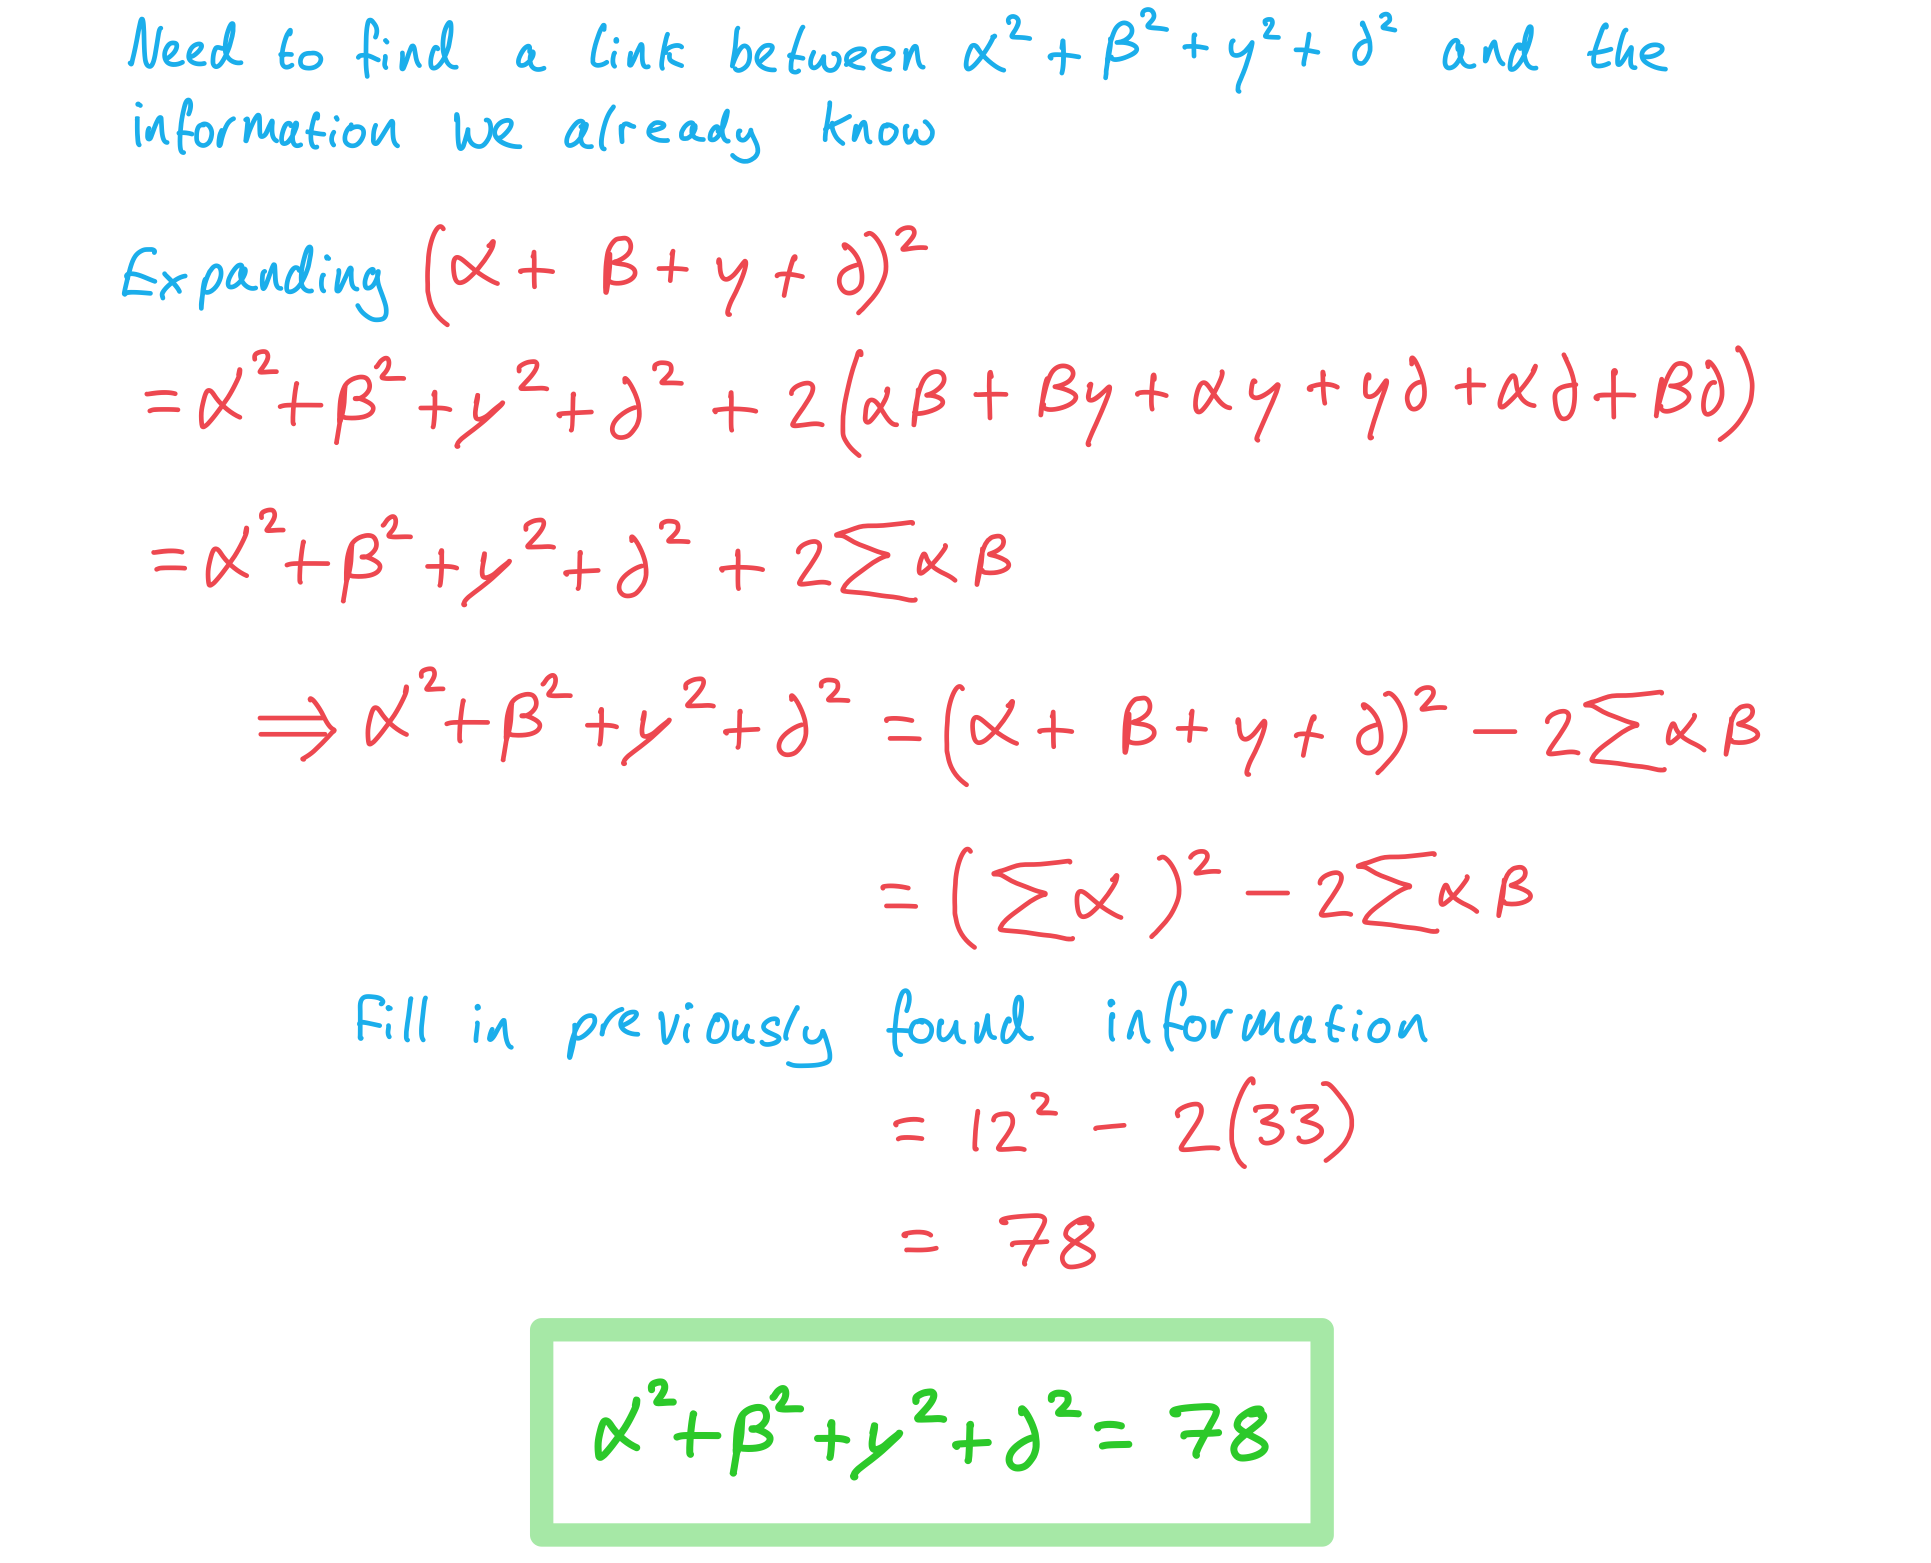 Need to find a link between α² + β² + γ² + ∂² and the
information we already know
Expanding (α + β + γ + ∂)²
= α² + β² + γ² + ∂² + 2(αβ + βγ + αγ + γ∂ + α∂ + β∂)
= α² + β² + γ² + ∂² + 2∑αβ
⟹ α² + β² + γ² + ∂² = (α + β + γ + ∂)² − 2∑αβ
= (∑α)² − 2∑αβ
Fill in previously found information
= 12² − 2(33)
= 78
α² + β² + γ² + ∂² = 78